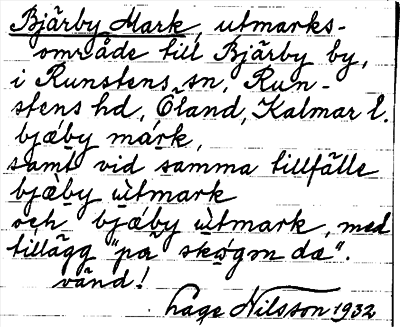 Bjärby Mark, utmarks-
område till Bjärby by,
i Runstens sn, Run-
stens hd, Öland, Kalmar l.
bjæ̀by márk,
samt vid samma tillfälle
bjæby ùtmark
och bjǽby ùtmark, med
tillägg "på skógøn da".
vänd!
Lage Nilsson 1932